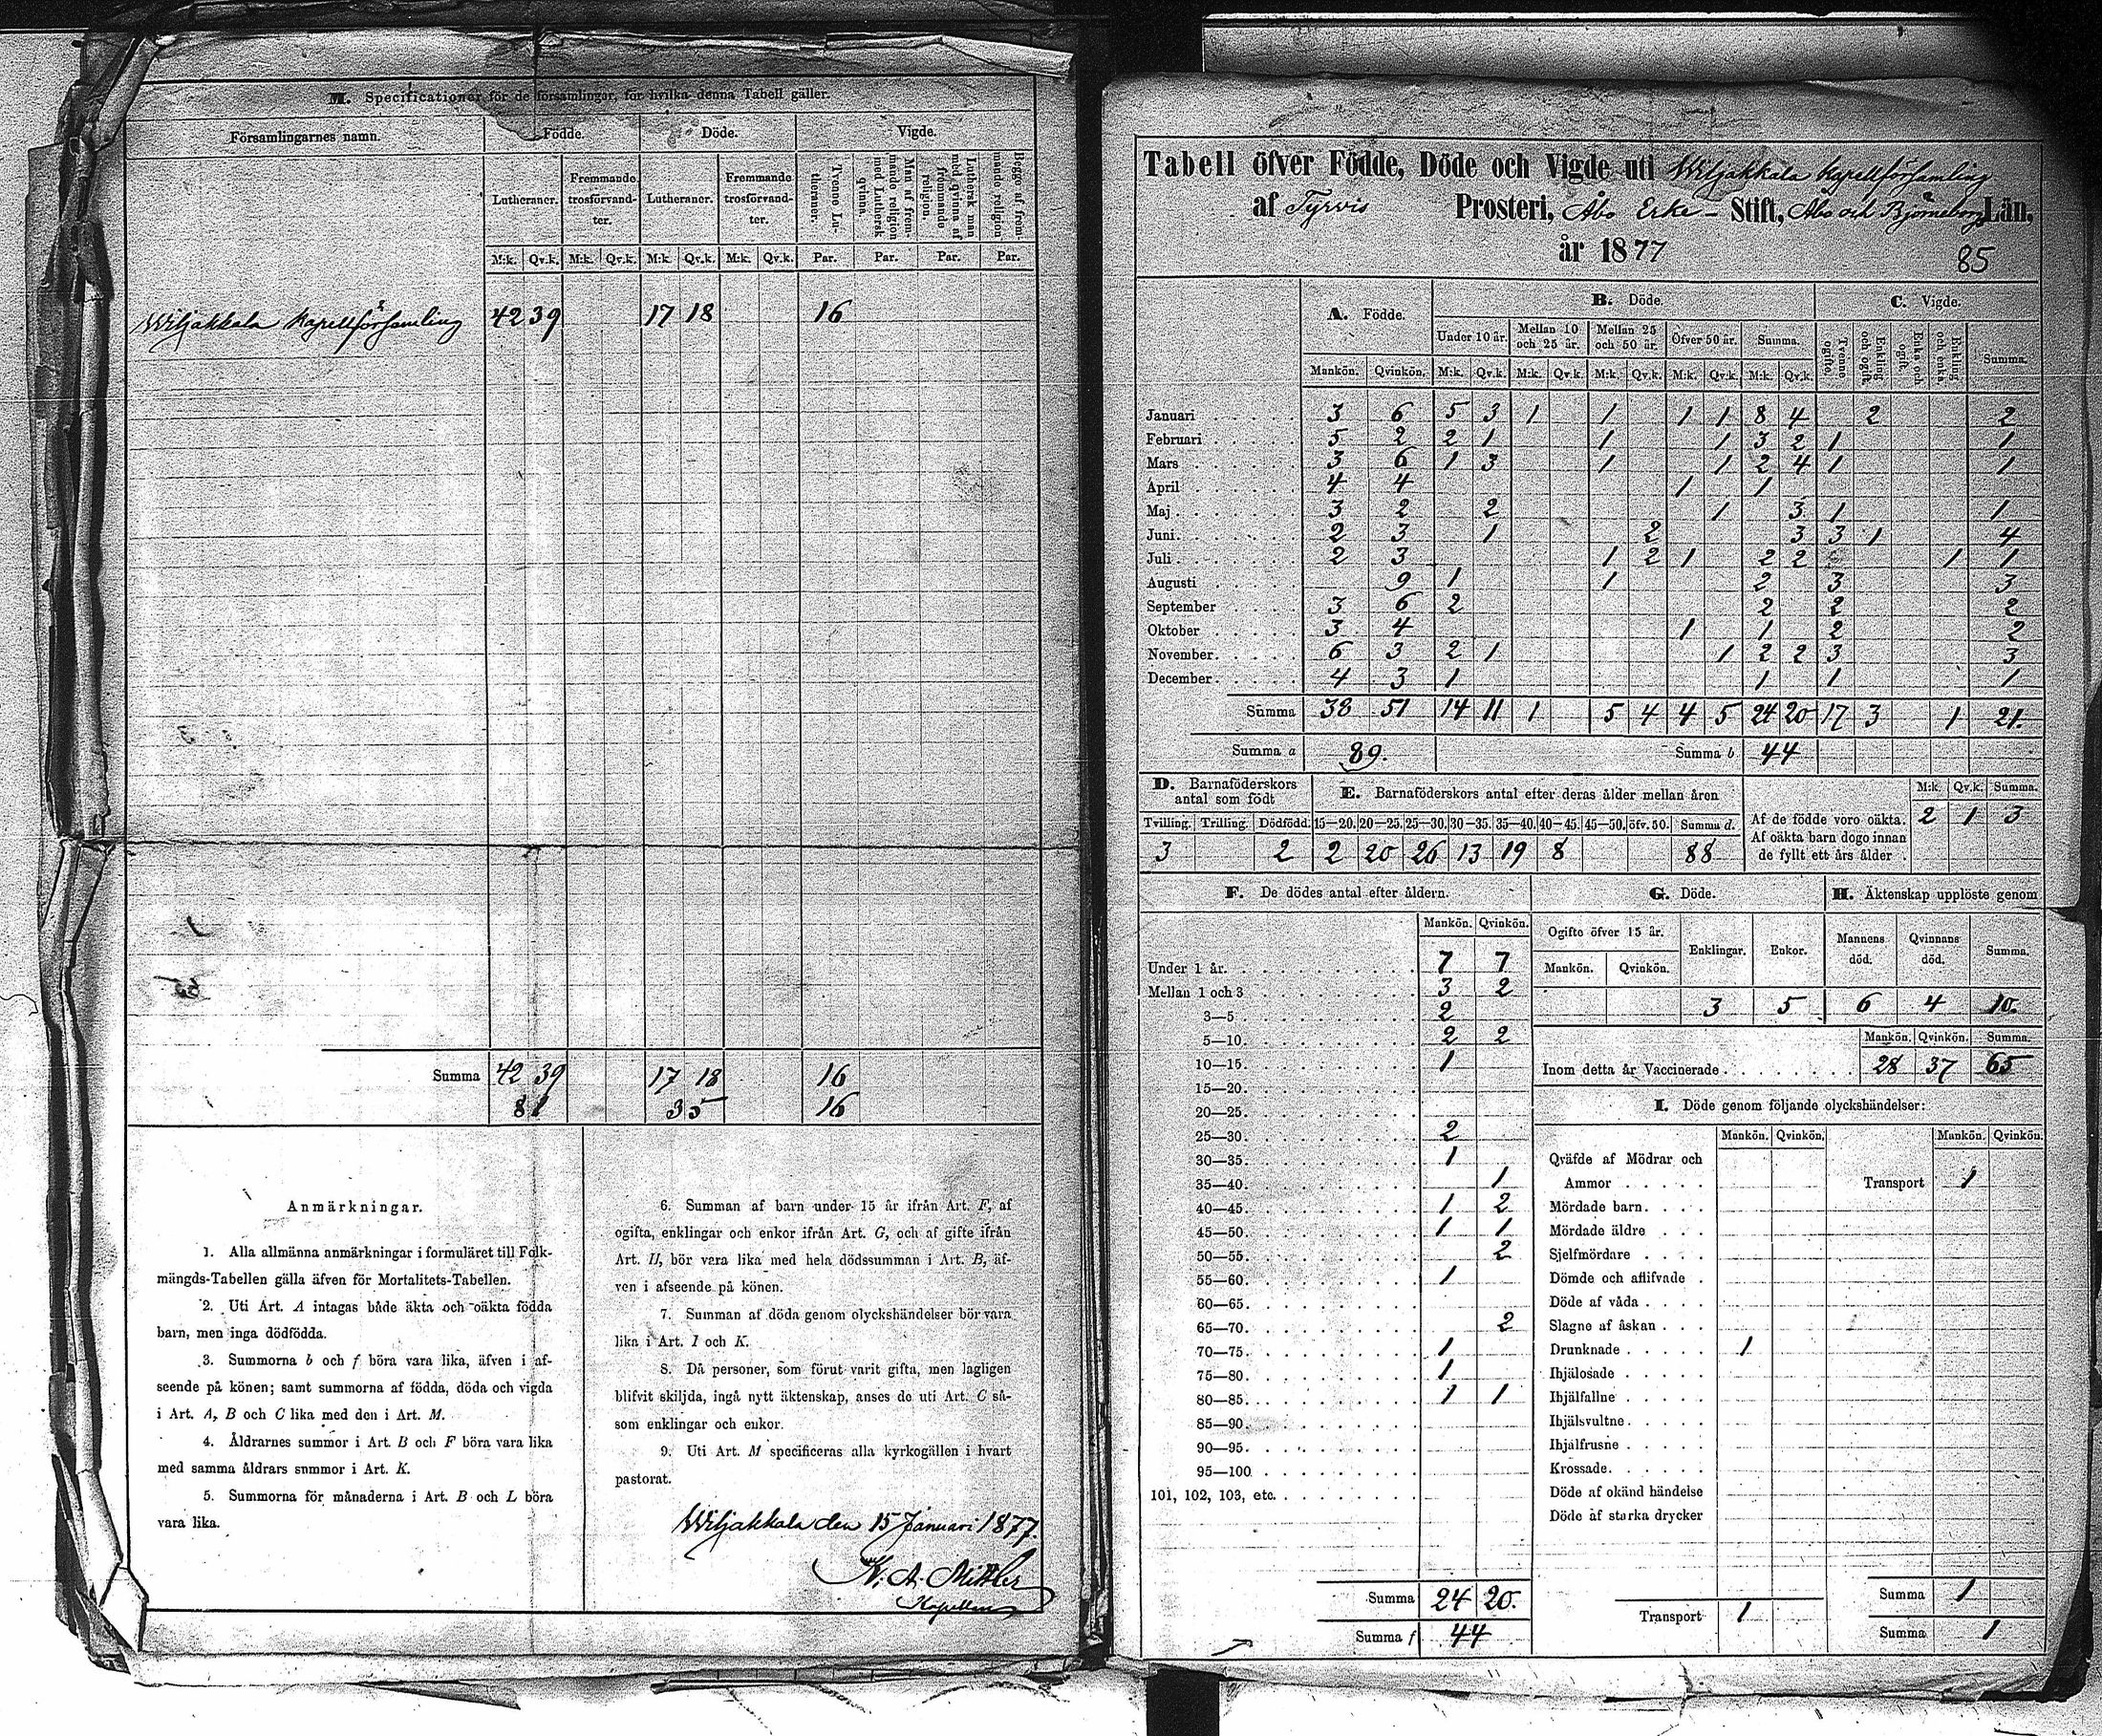 M. Specificationer för de församlingar, för hvilka denna Tabell gäller.
Församlingarnes namn. Födde. Döde. Vigde.
Lutheraner. Fremmande trosförvandter. Lutheraner. Fremmande trosförvandter. Tvenne Lutheraner. Man af fremmande religion med Luthersk qvinna. Luthersk man med qvinna af fremmande religion. Begge af fremmande religion
M:k. Qv.k. M:k. Qv.k. M:k. Qv.k. M:k. Qv.k. Par. Par. Par. Par.
Wiljakkala Kapellförsamling 42 39 17 18 16
Summa 42 39 17 18 16
81 35 16
Anmärkningar.
1. Alla allmänna anmärkningar i formuläret till Folk-
mängds-Tabellen gälla äfven för Mortalitets-Tabellen.
2. Uti Art. A intagas både äkta och oäkta födda
barn, men inga dödfödda.
3. Summorna b och f böra vara lika, äfven i af-
seende på könen; samt summorna af födda, döda och vigda
i Art. A, B och C lika med den i Art. M.
4. Åldrarnes summor i Art. B och F böra vara lika
med samma åldrars summor i Art. K.
5. Summorna för månaderna i Art. B och L böra
vara lika.
6. Summan af barn under 15 år ifrån Art. F, af
ogifta, enklingar och enkor ifrån Art. G, och af gifte ifrån
Art. H, bör vara lika med hela dödssumman i Art. B, äf-
ven i afseende på könen.
7. Summan af döda genom olyckshändelser bör vara
lika i Art. I och K.
8. Då personer, som förut varit gifta, men lagligen
blifvit skiljda, ingå nytt äktenskap, anses de uti Art. C så-
som enklingar och enkor.
9. Uti Art. M specificeras alla kyrkogällen i hvart
pastorat.
Wiljakkala den 15 Januari 1877.
Tabell öfver Födde, Döde och Vigde uti Wiljakkala Kapellförsamling
af Tyrvis Prosteri, Åbo Erke- Stift, Åbo och Björneborgs Län,
år 1877
85
A. Födde. B. Döde. C. Vigde.
Under 10 år. Mellan 10 och 25 år. Mellan 25 och 50 år. Öfver 50 år. Summa. Tvenne ogifte Enkling och ogift Enka och ogift Enkling och enka Summa.
Mankön. Qvinkön. M:k. Qv.k. M:k. Qv.k. M:k. Qv.k. M:k. Qv.k. M:k. Qv.k.
Januari 3 6 5 3 1 1 1 1 8 4 2 2
Februari 5 2 2 1 1 1 3 2 1 1
Mars 3 6 1 3 1 1 2 4 1 1
April 4 4 1 1
Maj 3 2 2 1 3 1 1
Juni 2 3 1 2 3 3 1 4
Juli 2 3 1 2 1 2 2 1 1
Augusti 9 1 1 2 3 3
September 3 6 2 2 2 2
Oktober 3 4 1 1 2 2
November 6 3 2 1 1 2 2 3 3
December 4 3 1 1 1 1
Summa 38 51 14 11 1 5 4 4 5 24 20 17 3 1 21.
Summa a 89. Summa b 44
D. Barnaföderskors antal som födt
Tvilling. Trilling. Dödfödd.
3 2
E. Barnaföderskors antal efter deras ålder mellan åren
15—20. 20—25. 25—30. 30—35. 35—40. 40—45. 45—50. öfv. 50. Summa d.
2 20 26 13 19 8 88
M:k. Qv.k. Summa.
Af de födde voro oäkta. 2 1 3
Af oäkta barn dogo innan
de fyllt ett års ålder
F. De dödes antal efter åldern.
Mankön. Qvinkön.
Under 1 år. 7 7
Mellan 1 och 3 3 2
3—5 2
5—10. 2 2
10—15. 1
15—20.
20—25.
25—30. 2
30—35. 1
35—40. 1
40—45. 1 2
45—50. 1 1
50—55. 2
55—60. 1
60—65.
65—70. 2
70—75. 1
75—80. 1
80—85. 1 1
85—90.
90—95.
95—100
101, 102, 103, etc.
Summa 24 20.
Summa f 44
G. Döde.
Ogifte öfver 15 år. Enklingar. Enkor.
Mankön. Qvinkön.
3 5
H. Äktenskap upplöste genom
Mannens död. Qvinnans död. Summa.
6 4 10.
Mankön. Qvinkön. Summa.
Inom detta år Vaccinerade 28 37 65
I. Döde genom följande olyckshändelser:
Mankön. Qvinkön. Mankön. Qvinkön.
Qväfde af Mödrar och
Ammor Transport 1
Mördade barn
Mördade äldre
Sjelfmördare
Dömde och aflifvade
Döde af våda
Slagne af åskan
Drunknade 1
Ihjälosade
Ihjälfallne
Ihjälsvultne
Ihjälfrusne
Krossade
Döde af okänd händelse
Döde af starka drycker
Summa 1
Transport 1
Summa 1